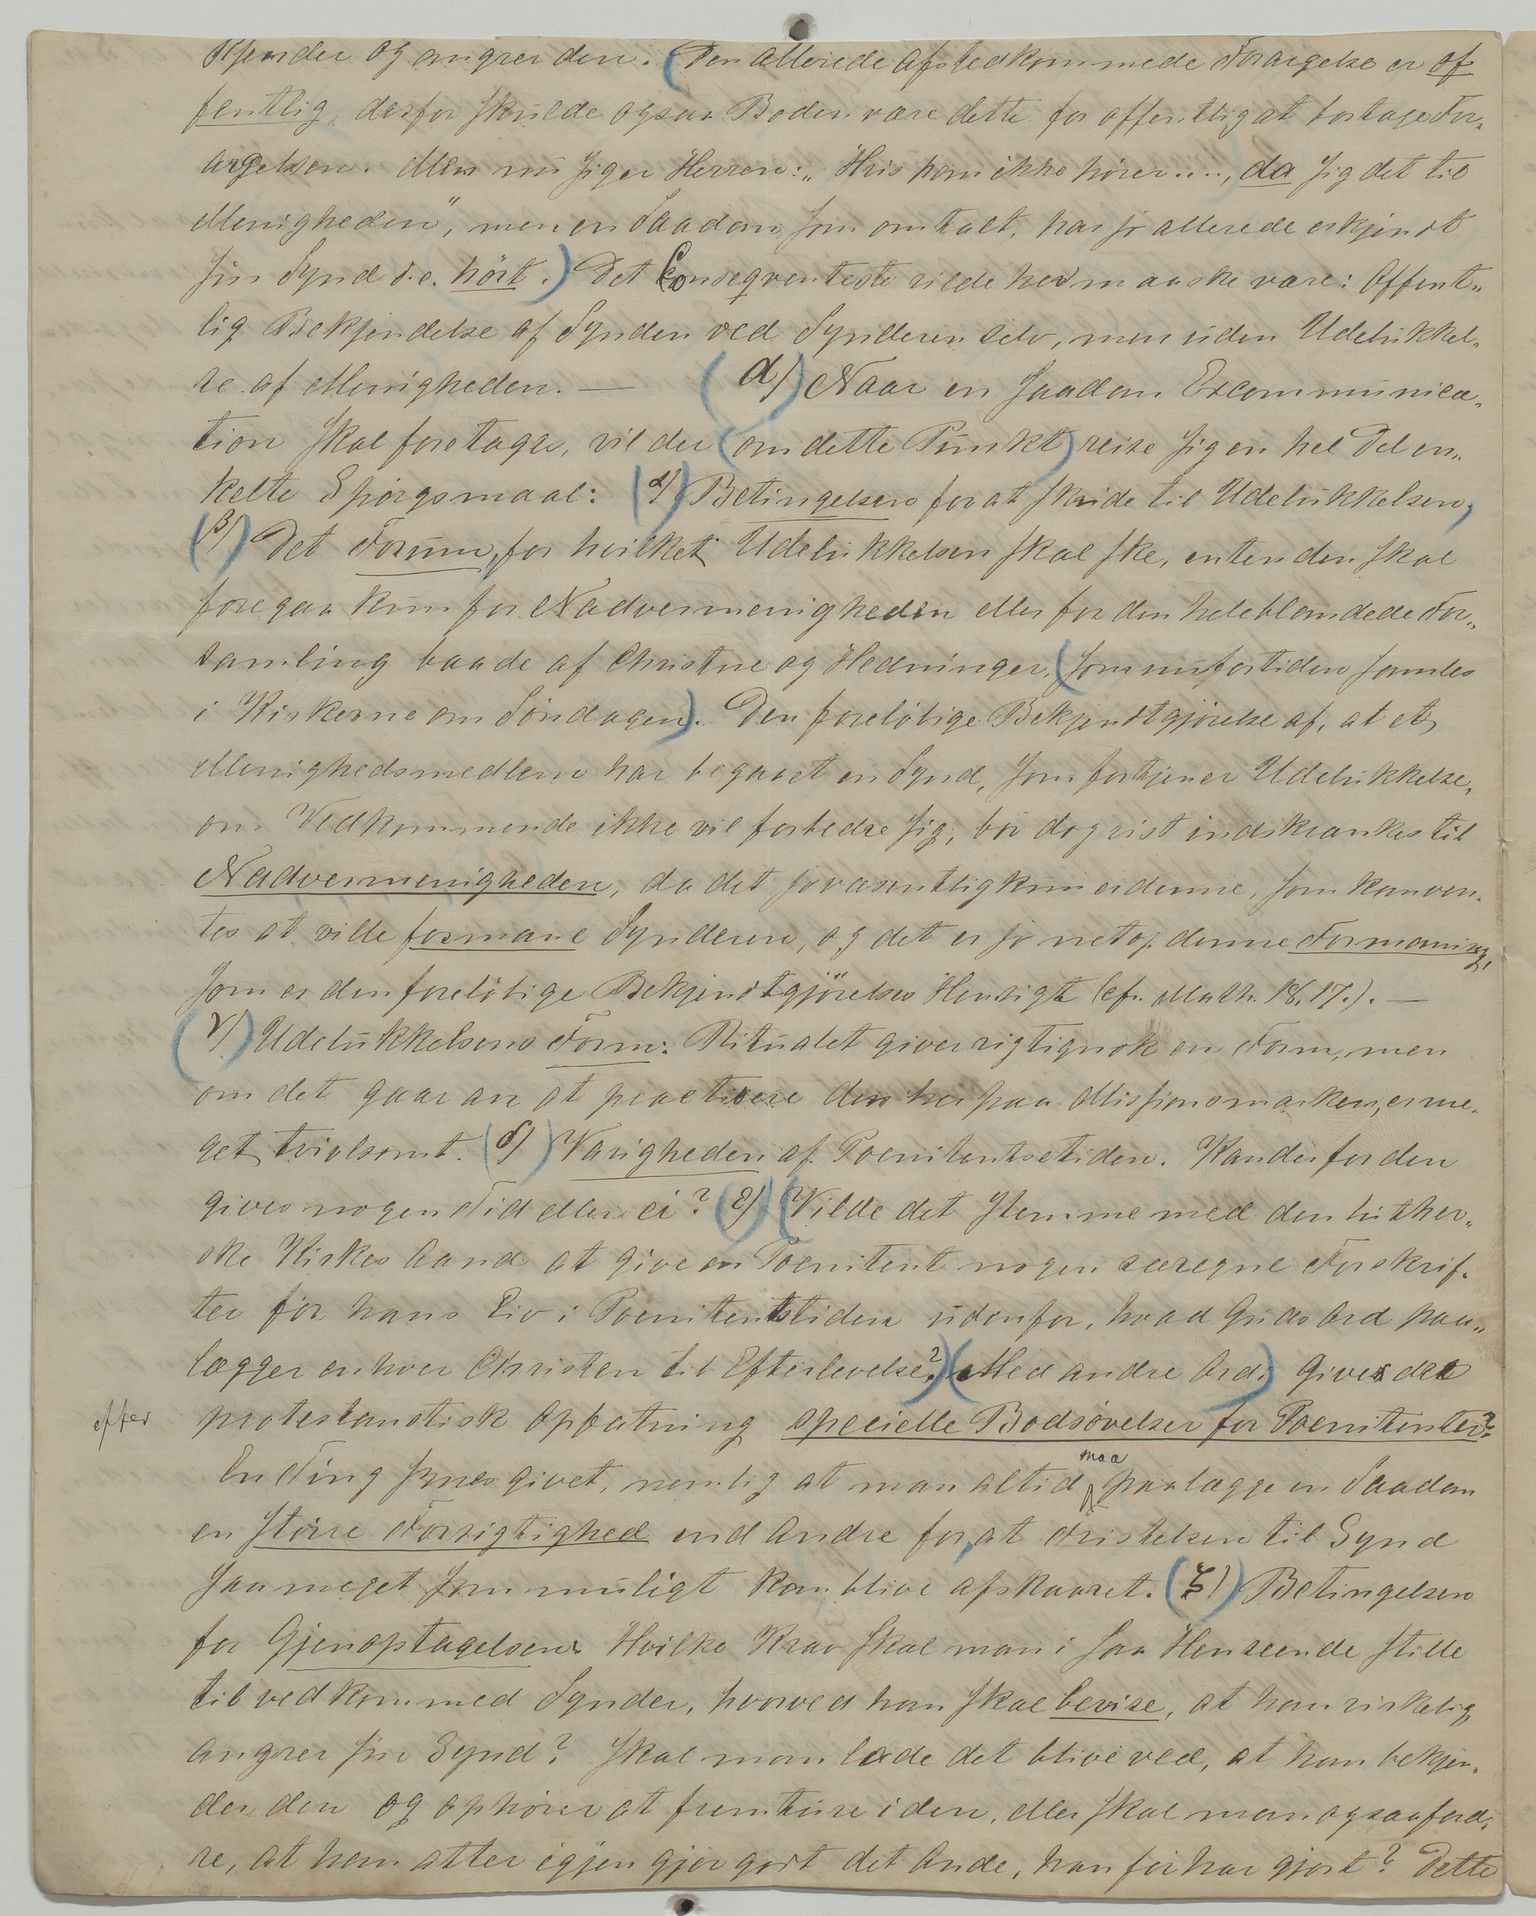 kjender og angrer den. (Den allerede afstedkommede Forargelse er of
fentlig, derfor skulde ogsaa Boden være dette for offentligt at borttage For„
argelsen. Men nu siger Herren: „Hvis han ikke hører...., da sig det til
Menigheden", men en Saadan, som omtalt, har jo allerede erkjendt
sin Synd d.e. hört.) Det Conseqventeste vilde her maaske være: Offent„
lig Bekjendelse af Synden ved Synderen selv, men uden Udelukkel„
se af Menigheden. — (d) Naar en saadan Excommunica„
tion skal foretages, vil der (om dette Punkt) reise sig en hel Del en„
kelte Spörgsmaal: (α) Betingelsen for at skride til Udelukkelsen,
(β) Det Forum, for hvilket Udelukkelsen skal ske, enten den skal
foregaa kun for Nadvermenigheden eller for den hele blandede For„
samling baade af Christne og Hedninger, (som nu fortiden samles
i Kirkerne om Söndagen). Den forelöbige Bekjendtgjörelse af, at et
Menighedsmedlem har begaaet en Synd, som fortjener Udelukkelse,
om Vedkommende ikke vil forbedre sig, bör dog vist indskrænkes til
Nadvermenigheden, da det jo væsentlig kun er denne, som kan ven„
tes at ville formane Synderen, og det er jo netop denne Formaning,
som er den forelöbige Bekjendtgjörelses Hensigt (cfr. Math. 18, 17.). —
(γ) Udelukkelsens Form: Ritualet giver rigtignok en Form, men
om det gaar an at practisere den her paa Missionsmarken, er me„
get tvivlsomt. (δ) Varigheden af Poenitentsetiden. Kan der for den
gives nogen Tid eller ei? (ε) (Vilde det stemme med den luther„
ske Kirkes Aand at give en Poenitent nogen særegne Forskrif„
ter for hans Liv i Poenitentstiden udenfor, hvad Guds Ord paa„
lægger enhver Christen til Efterlevelse?) (Med andre Ord:) Gives der
efter protestantisk Opfatning specielle Bodsövelser for Poenitenter?
En Ting synes givet, nemlig at man altid maa paalægge en Saadan
en större Forsigtighed end Andre for, at Fristelsen til Synd
saa meget som muligt kan blive afskaaret. (ζ) Betingelsen
for Gjenoptagelsen. Hvilke Krav skal man i saa Henseende stille
til vedkommed Synder, hvorved han skal bevise, at han virkelig
angrer sin Synd? Skal man lade det blive ved, at han bekjen„
der den og ophörer at fremture i den, eller skal man ogsaa ford„
re, at han atter igjen gjör godt det Onde, han för har gjort? Dette